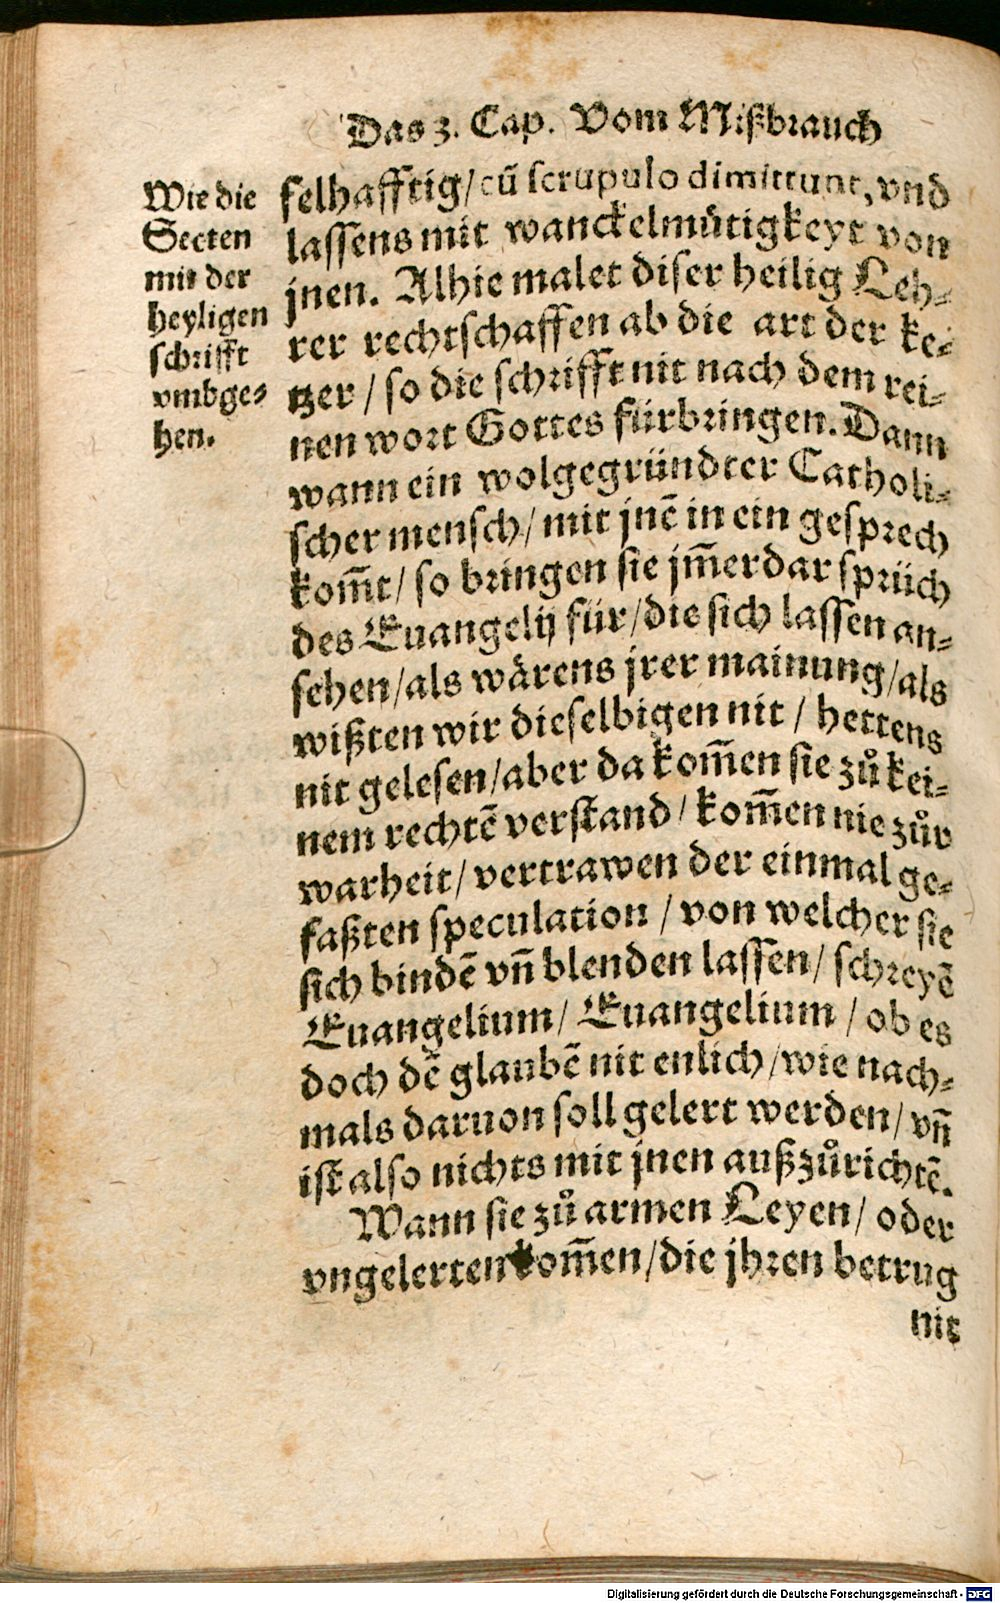 Das 3. Cap. Vom Mißbrauch
Wie die
Secten
mit der
heyligen
schrifft
vmbge⸗
hen.
felhafftig/cū scrupulo dimittunt, vnd
lassens mit wanckelmuͤtigkeyt von
jnen. Alhie malet diser heilig Leh⸗
rer rechtschaffen ab die art der ke⸗
tzer / so die schrifft nit nach dem rei⸗
nen wort Gottes fürbringen. Dann
wann ein wolgegründter Catholi⸗
scher mensch/ mit jnē in ein gesprech
kom̄t/ so bringen sie jm̄erdar sprüch
des Euangelij für/die sich lassen an⸗
sehen/als waͤrens jrer mainung/als
wißten wir dieselbigen nit / hettens
nit gelesen/aber da kom̄en sie zuͦ kei⸗
nem rechtē verstand / kom̄en nie zuͦr
warheit/ vertrawen der einmal ge⸗
faßten speculation / von welcher sie
sich bindē vn̄ blenden lassen/ schreyē
Euangelium/ Euangelium / ob es
doch dē glaubē nit enlich/wie nach⸗
mals daruon soll gelert werden/ vn̄
ist also nichts mit jnen außzuͦrichtē.
Wann sie zuͦ armen Leyen/ oder
vngelerten kom̄en/die jhren betrug
nit
Digitalisierung gefördert durch die Deutsche Forschungsgemeinschaft - DFG